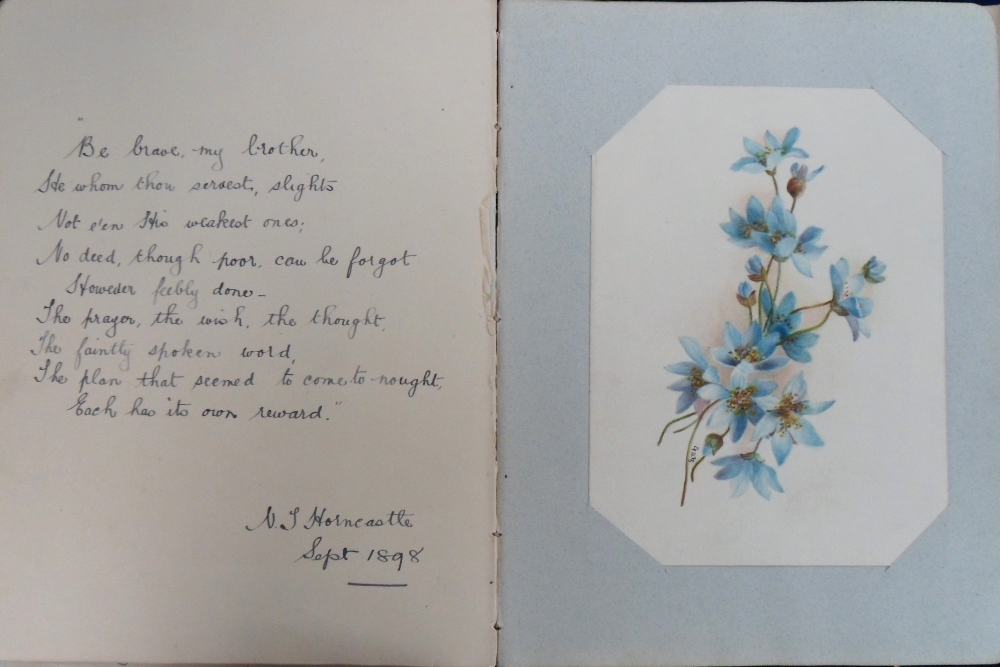 "Be brave, my brother,
He whom thou servest, slights
Not e'en His weakest ones;
No deed, though poor, can be forgot
However feebly done—
The prayer, the wish, the thought,
The faintly spoken word,
The plan that seemed to come to nought,
Each has its own reward."
Horncastle
Sept 1898